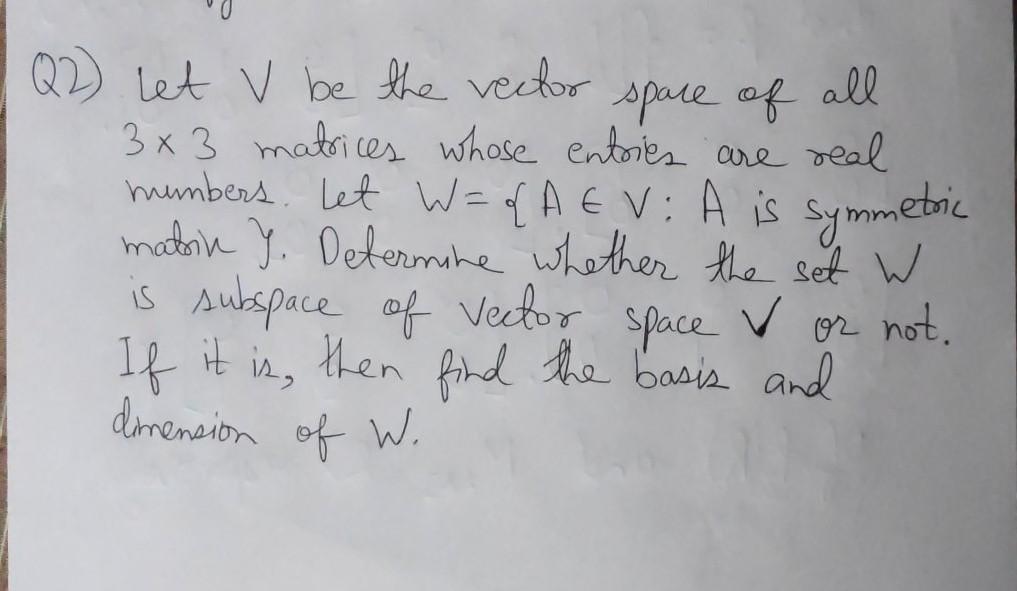 Q2) Let V be the vector space of all
3 x 3 matrices whose entries are real
numbers. Let W = { A ∈ V : A is symmetric
matrix }. Determine whether the set W
is subspace of vector space V or not.
If it is, then find the basis and
dimension of W.